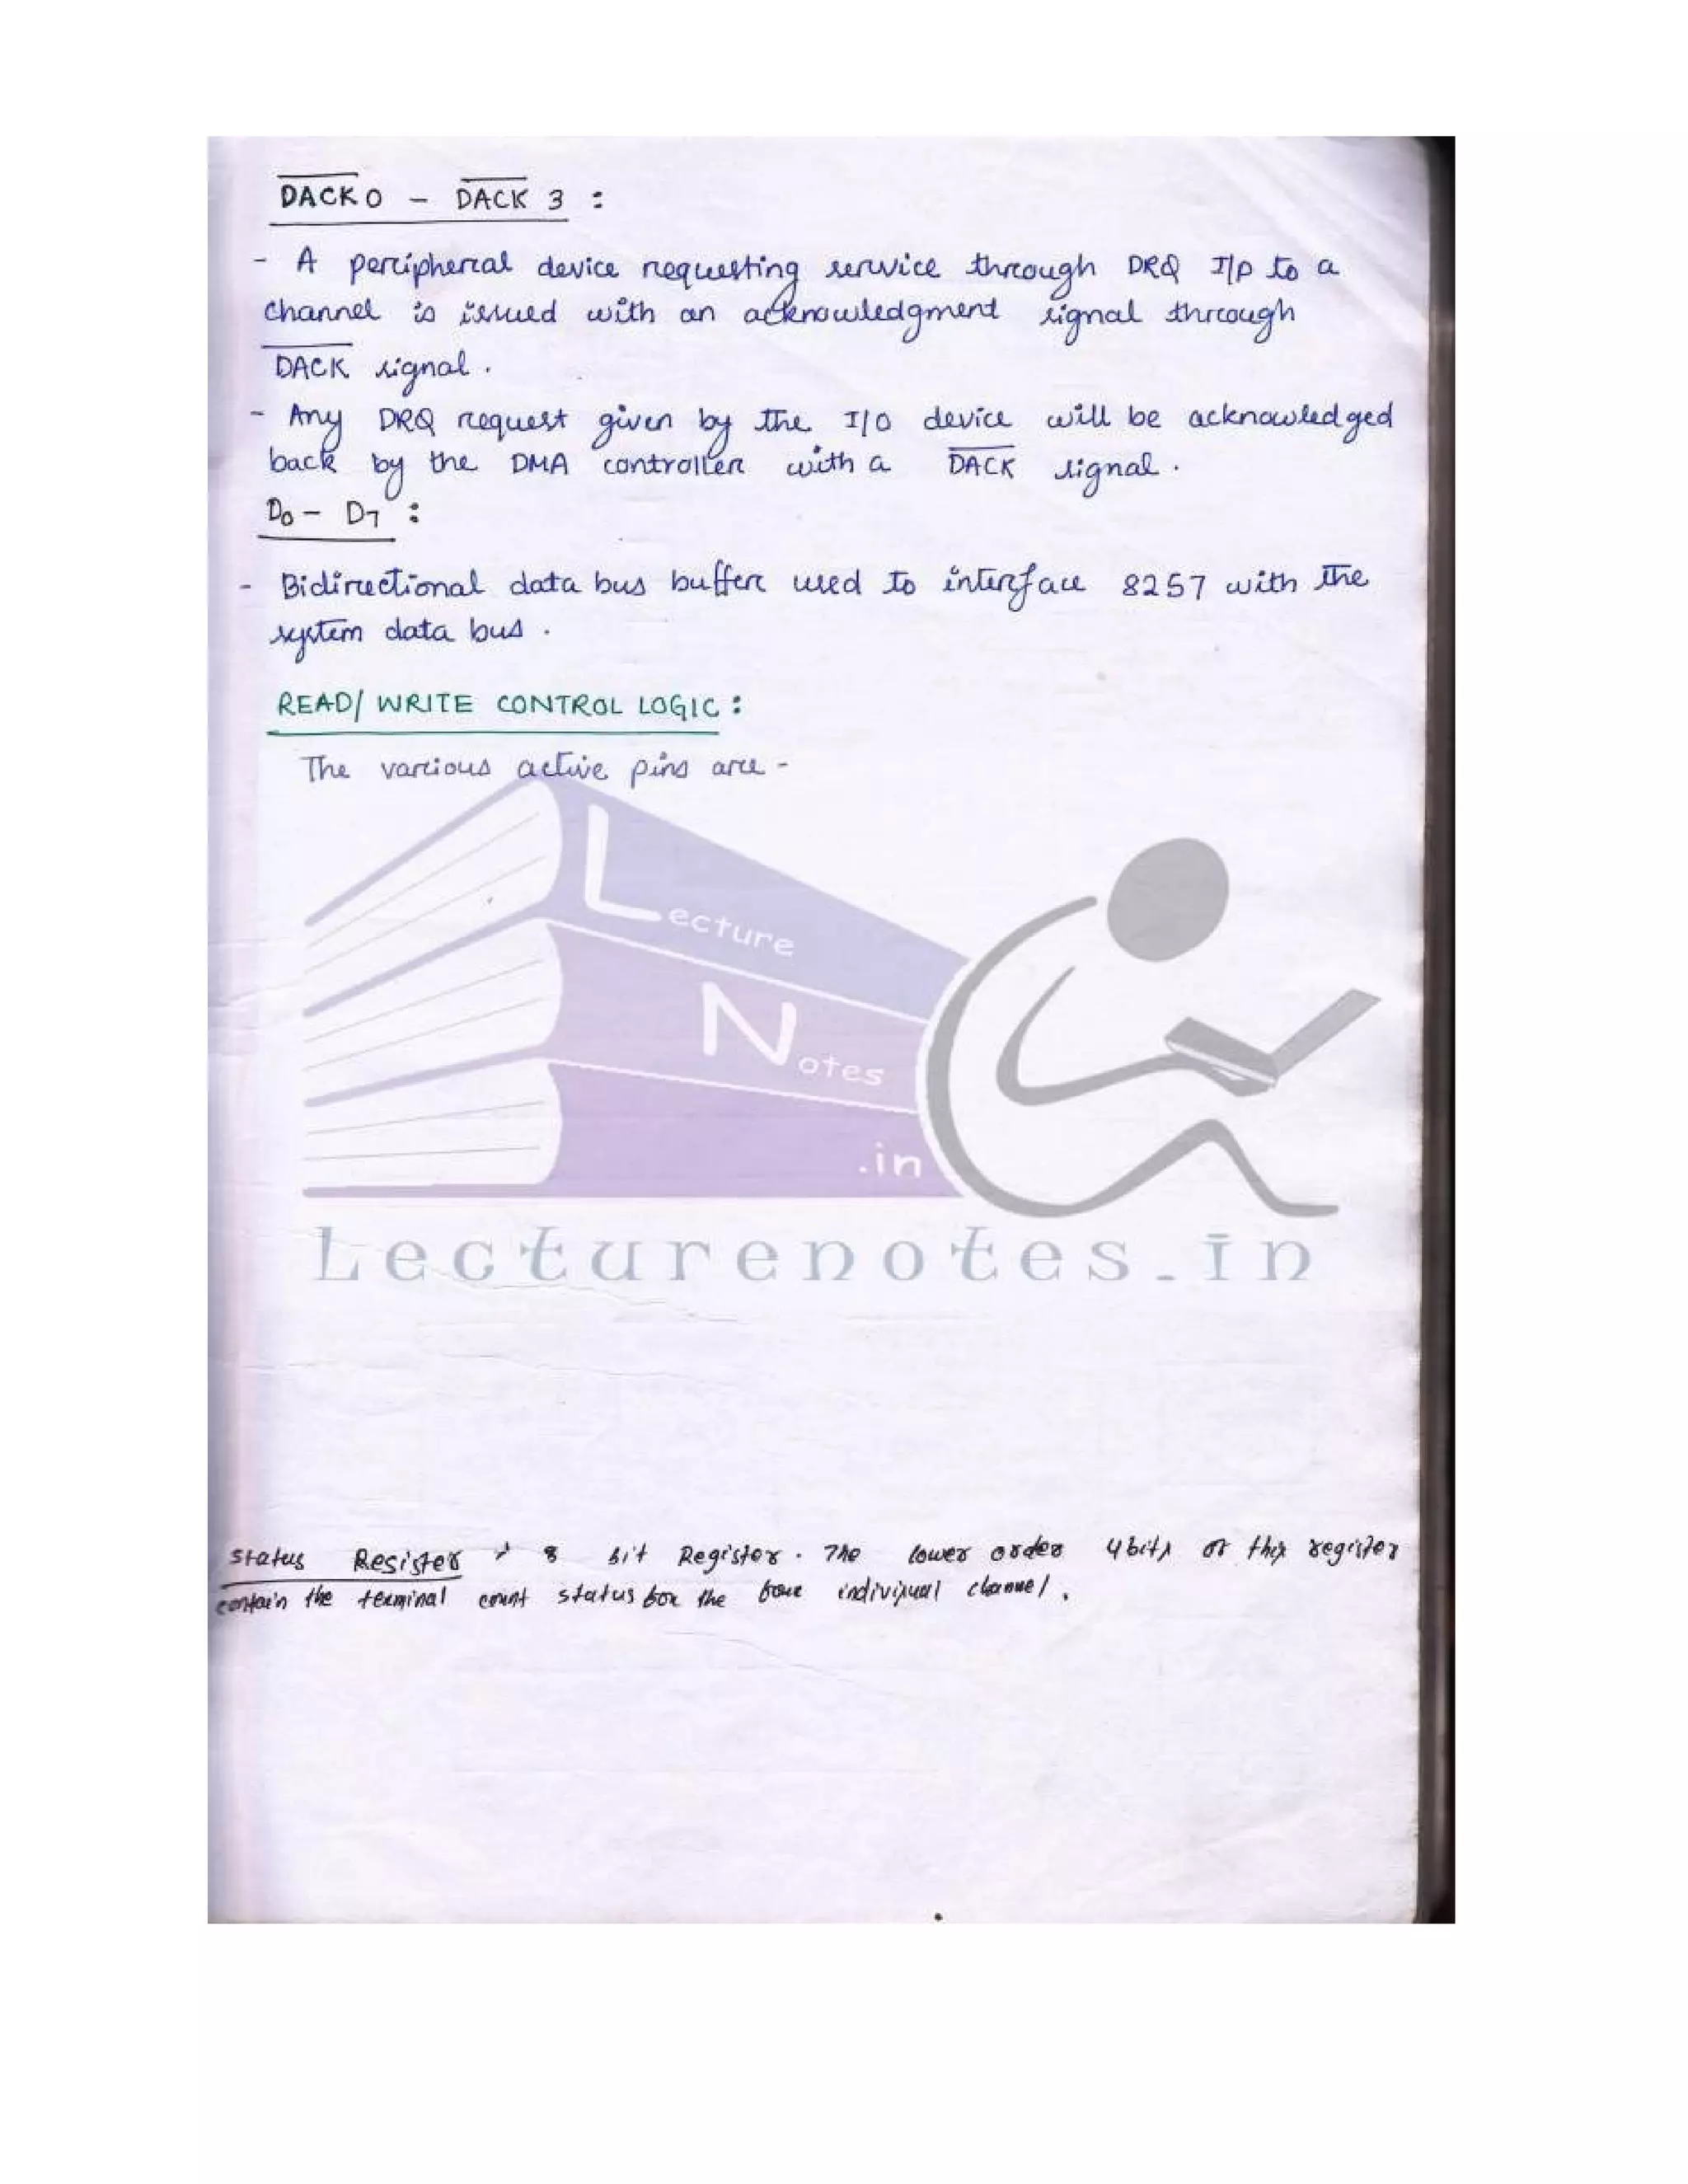 D̅A̅C̅K̅ 0 - D̅A̅C̅K̅ 3 :
- A peripheral device requesting service through DRQ I/P to a
channel is issued with an acknowledgment signal through
D̅A̅C̅K̅ signal.
- Any DRQ request given by the I/O device will be acknowledged
back by the DMA controller with a D̅A̅C̅K̅ signal.
D0 - D7 :
- Bidirectional data bus buffer used to interface 8257 with the
system data bus.
READ/ WRITE CONTROL LOGIC :
The various active pins are -
Lecture
Notes
.in
Lecturenotes.in
Status Register → 8 bit Register. The lower order 4 bits of this register
contain the terminal count status for the four individual channel.